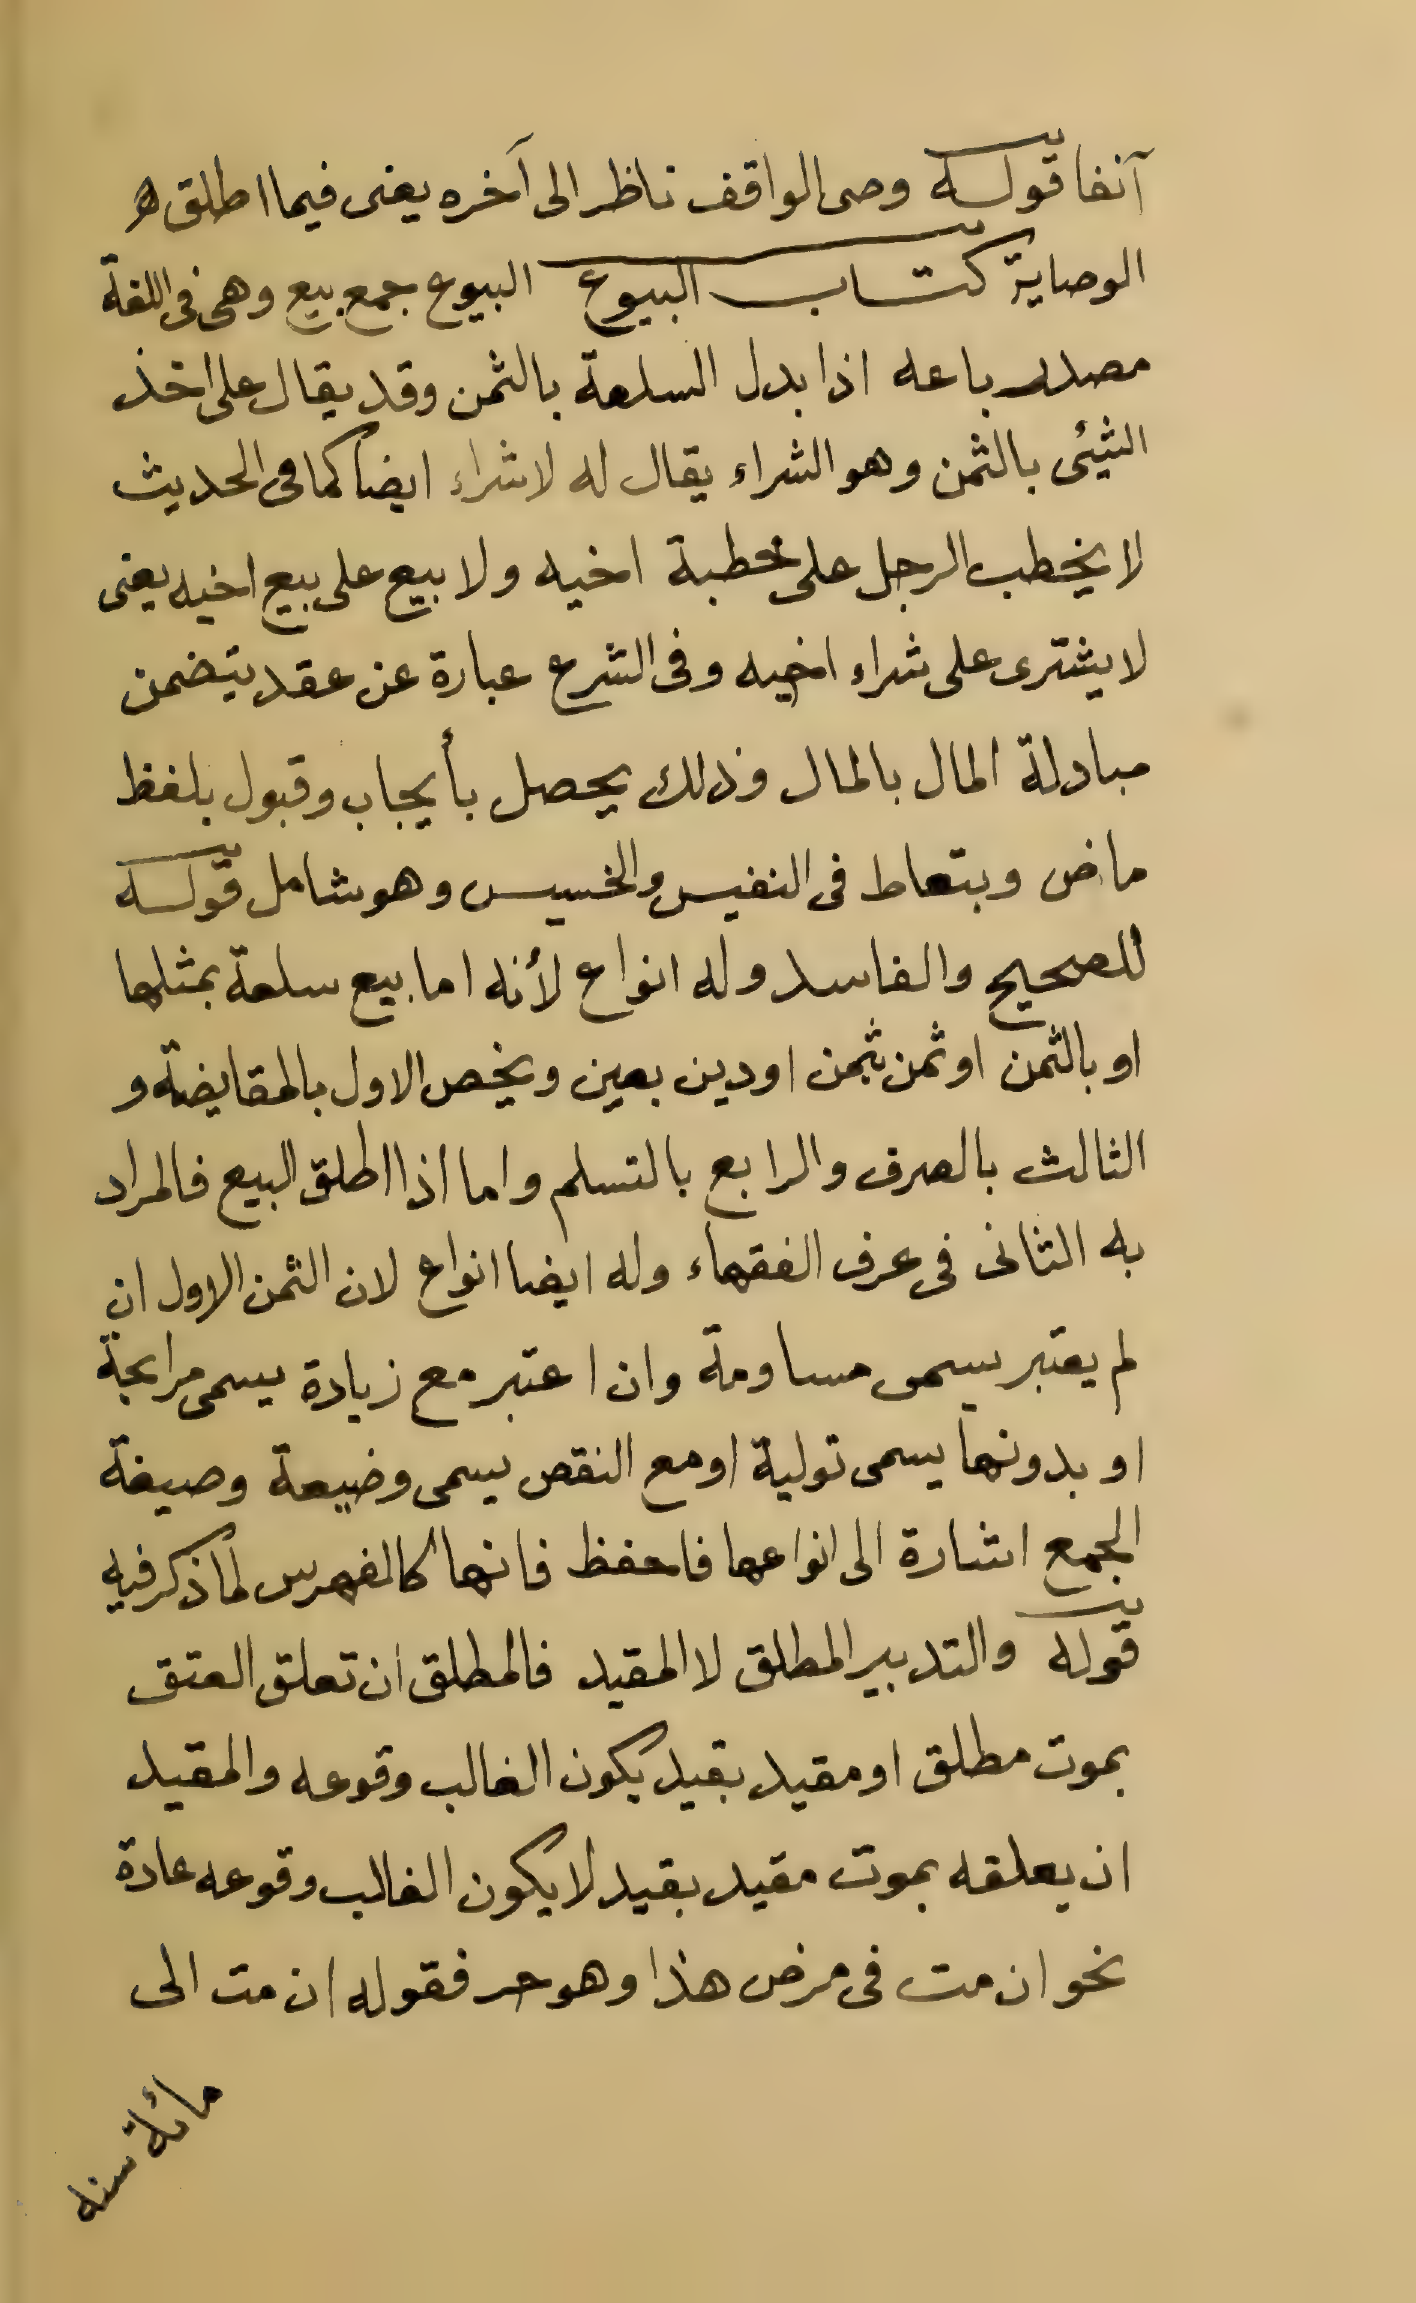 آنفا قوله وصى الواقف ناظر الى آخره يعنى فيما اطلق
الوصاية كتاب البيوع البيوع جمع بيع وهى فى اللغة
مصدر باعه اذا بدل السلعة بالثمن وقد يقال على اخذ
الشيئى بالثمن وهو الشراء يقال له لاشراء ايضا كما فى الحديث
لا يخطب الرجل على خطبة اخيه ولا بيع على بيع اخيه يعنى
لا يشترى على شراء اخيه وفى الشرع عبارة عن عقد يتضمن
مبادلة المال بالمال وذلك يحصل بأيجاب وقبول بلفظ
ماض وبتعاط فى النفيس والخسيس وهو شامل قوله
للصحيح والفاسد وله انواع لأنه اما بيع سلعة بمثلها
او بالثمن او ثمن بثمن او دين بعين ويخص الاول بالمقايضة و
الثالث بالصرف والرابع بالتسلم واما اذا اطلق البيع فالمراد
به الثانى فى عرف الفقهاء وله ايضا انواع لان الثمن الاول ان
لم يعتبر يسمى مساومة وان اعتبر مع زيادة يسمى مرابحة
او بدونها يسمى تولية او مع النقص يسمى وضيعة وصيغة
الجمع اشارة الى انواعها فاحفظ فانها كالفهرس لما ذكر فيه
قوله والتدبير المطلق لا المقيد فالمطلق ان تعلق العتق
بموت مطلق او مقيد بقيد يكون الغالب وقوعه والمقيد
ان يعلقه بموت مقيد بقيد لا يكون الغالب وقوعه عادة
نحو ان مت فى مرض هذا وهو حر فقوله ان مت الى
مائة سنه